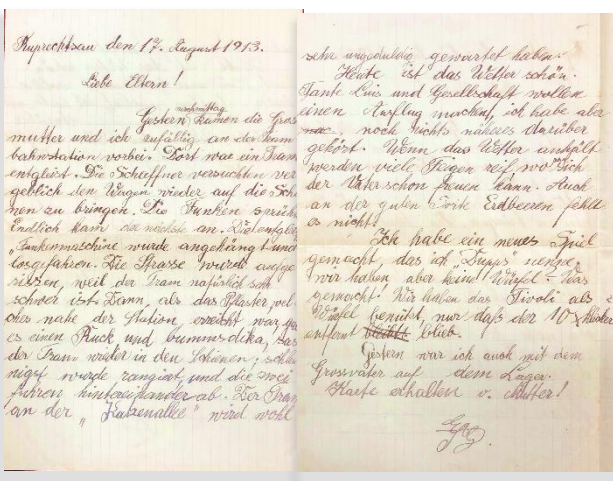 Ruprechtsau den 17. August 1913.
Liebe Eltern!
Gestern nachmittag kamen die Gros
mutter und ich zufällig an der Tram
bahnstation vorbei. Dort war ein Tram
entgleist. Die Schaffner versuchten ver
geblich den Wagen wieder auf die Schie
nen zu bringen. Die Funken sprüh
Endlich kam die nächste an. Die
"Funkenmaschine wurde angehängt und
losgefahren. Die Strasse wurde aufge
rissen, weil der Tram natürlich sehr
schwer ist. Dann, als das Pflaster, wel
ches nahe der Station, erreicht war, ga
es einen Ruck und bummsdika, sas
der Tram wieder in den Schienen;
nigst wurde rangiert, und die zwei
fuhren hintereinander ab. Der Tram
an der "Katzenallee" wird wohl
sehr ungeduldig gewartet haben.
Heute ist das Wetter schön.
Tante Luis und Gesellschaft wollen
einen Ausflug machen, ich habe aber
noch nichts näheres darüber
gehört. Wenn das Wetter anhält
werden viele Feigen reif, wo sich
der Vater schon freuen kann. Auch
an der guten Erdbeeren fehlt
es nicht!
Ich habe ein neues Spiel
gemacht, das ich nenne,
wir haben aber keine Würfel. Was
gemacht! Wir haben das Tivoli als
Würfel benützt, nur daß der 10
entfernt blieb.
Gestern war ich auch mit dem
Grossvater auf dem Lager.
Karte erhalten v. Mutter!